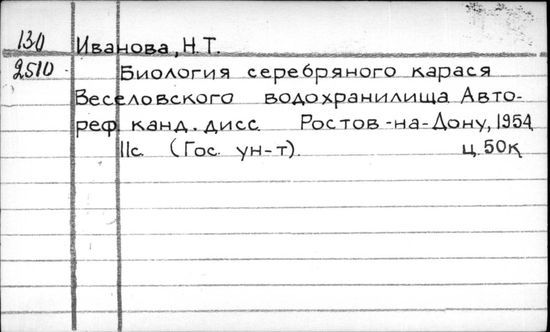 130 Иванова, Н.Т.
2510 Биология серебряного карася
Веселовского водохранилища Авто-
реф канд. дисс. Ростов-на-Дону, 1954
11с. (Гос. ун-т). ц. 50к